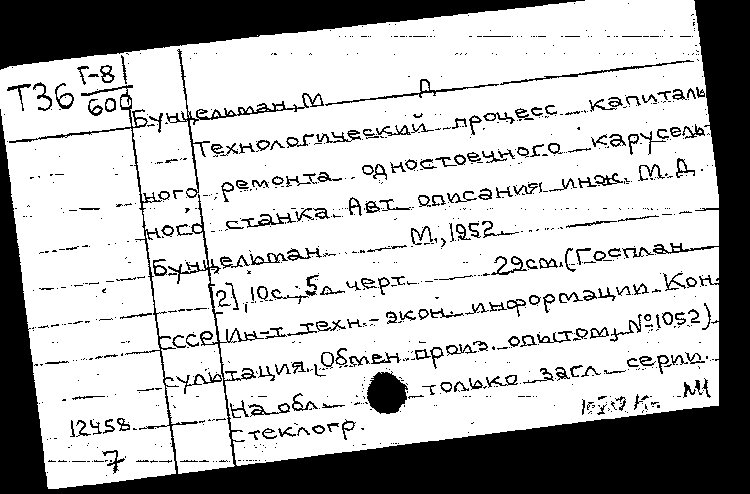 Т36 Г-8
600
Бунцельман, М Д
Технологический процесс капиталь
ного ремонта одностоечного карусель-
ного станка. Авт. описания инж. М.Д.
Бунцельман. М., 1952.
[2], 10с., 5л черт. 29см. (Госплан
СССР Ин-т техн.-экон. информации. Кон-
сультация, Обмен произ. опытом, №1052)
На обл. только загл. серии.
Стеклогр.
12458
7